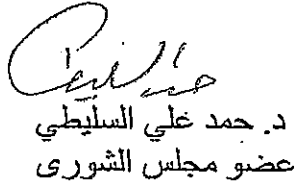 د. حمد علي السليطي
عضو مجلس الشورى